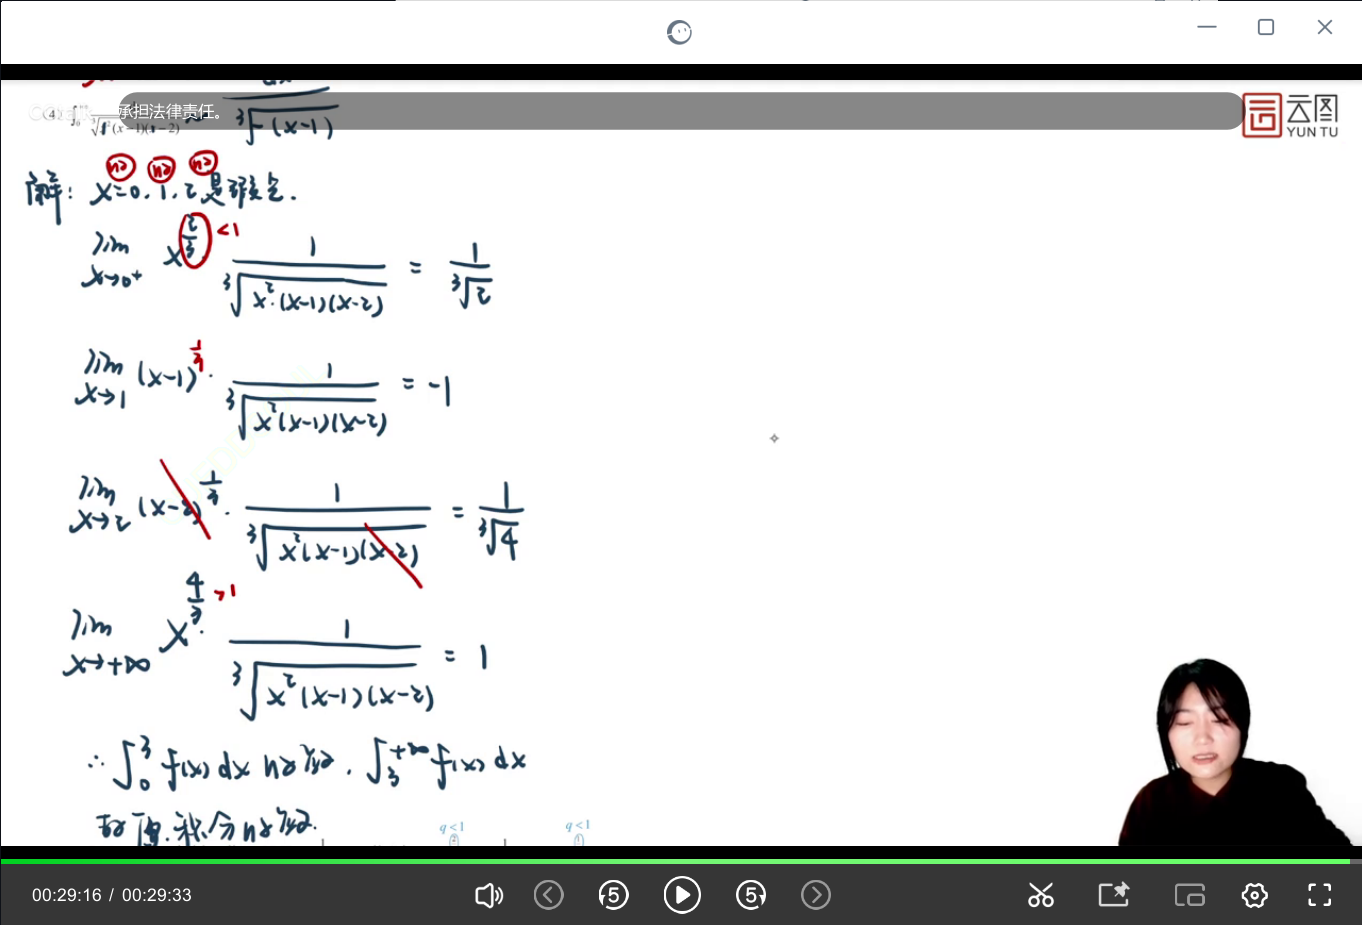 承担法律责任。
(x-1)(x-2)
∛(-(x-1))
云图
YUN TU
解: x=0, 1, 2 是瑕点.
lim x→0⁺ x^(2/3) <1 · 1/∛(x²·(x-1)(x-2)) = 1/∛2
lim x→1 (x-1)^(1/3) · 1/∛(x²(x-1)(x-2)) = -1
lim x→2 (x-2)^(1/3) · 1/∛(x²(x-1)(x-2)) = 1/∛4
lim x→+∞ x^(4/3) >1 · 1/∛(x²(x-1)(x-2)) = 1
∴ ∫₀³ f(x) dx 收敛, ∫₃^(+∞) f(x) dx
故原积分收敛.
q<1
q<1
② ①
00:29:16 / 00:29:33
5
5